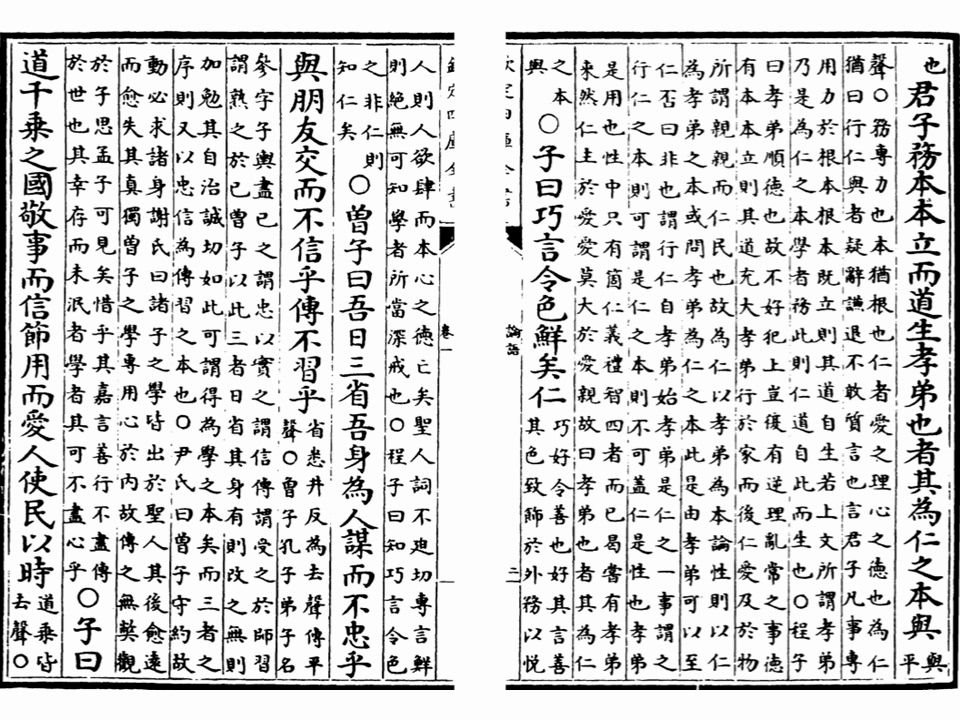 也
君子務本本立而道生孝弟也者其為仁之本與
與
平
聲○務專力也本猶根也仁者愛之理心之德也為仁
猶曰行仁與者疑辭謙退不敢質言也言君子凡事專
用力於根本根本既立則其道自生若上文所謂孝弟
乃是為仁之本學者務此則仁道自此而生也○程子
曰孝弟順德也故不好犯上豈復有逆理亂常之事德
有本本立則其道充大孝弟行於家而後仁愛及於物
所謂親親而仁民也故為仁以孝弟為本論性則以仁
為孝弟之本或問孝弟為仁之本此是由孝弟可以至
仁否曰非也謂行仁自孝弟始孝弟是仁之一事謂之
行仁之本則可謂是仁之本則不可蓋仁是性也孝弟
是用也性中只有箇仁義禮智四者而已曷嘗有孝弟
來然仁主於愛愛莫大於愛親故曰孝弟也者其為仁
之本
與
○子曰巧言令色鮮矣仁
巧好令善也好其言善
其色致飾於外務以悅
欽定四庫全書
論語
二
欽定四庫全書
卷一
人則人欲肆而本心之德亡矣聖人詞不迫切專言鮮
則絕無可知學者所當深戒也○程子曰知巧言令色
之非仁則
知仁矣
○曾子曰吾日三省吾身為人謀而不忠乎
與朋友交而不信乎傳不習乎
省悉井反為去聲傳平
聲○曾子孔子弟子名
參字子輿盡已之謂忠以實之謂信傳謂受之於師習
謂熟之於已曾子以此三者日省其身有則改之無則
加勉其自治誠切如此可謂得為學之本矣而三者之
序則又以忠信為傳習之本也○尹氏曰曾子守約故
動必求諸身謝氏曰諸子之學皆出於聖人其後愈遠
而愈失其真獨曾子之學專用心於內故傳之無弊觀
於子思孟子可見矣惜乎其嘉言善行不盡傳
於世也其幸存而未泯者學者其可不盡心乎
○子曰
道千乘之國敬事而信節用而愛人使民以時
道乘皆
去聲○